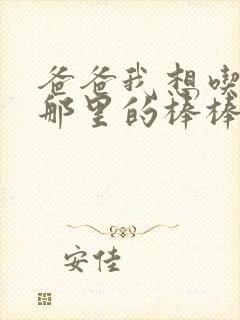 爸爸我想喫
那里的棒棒
安佳